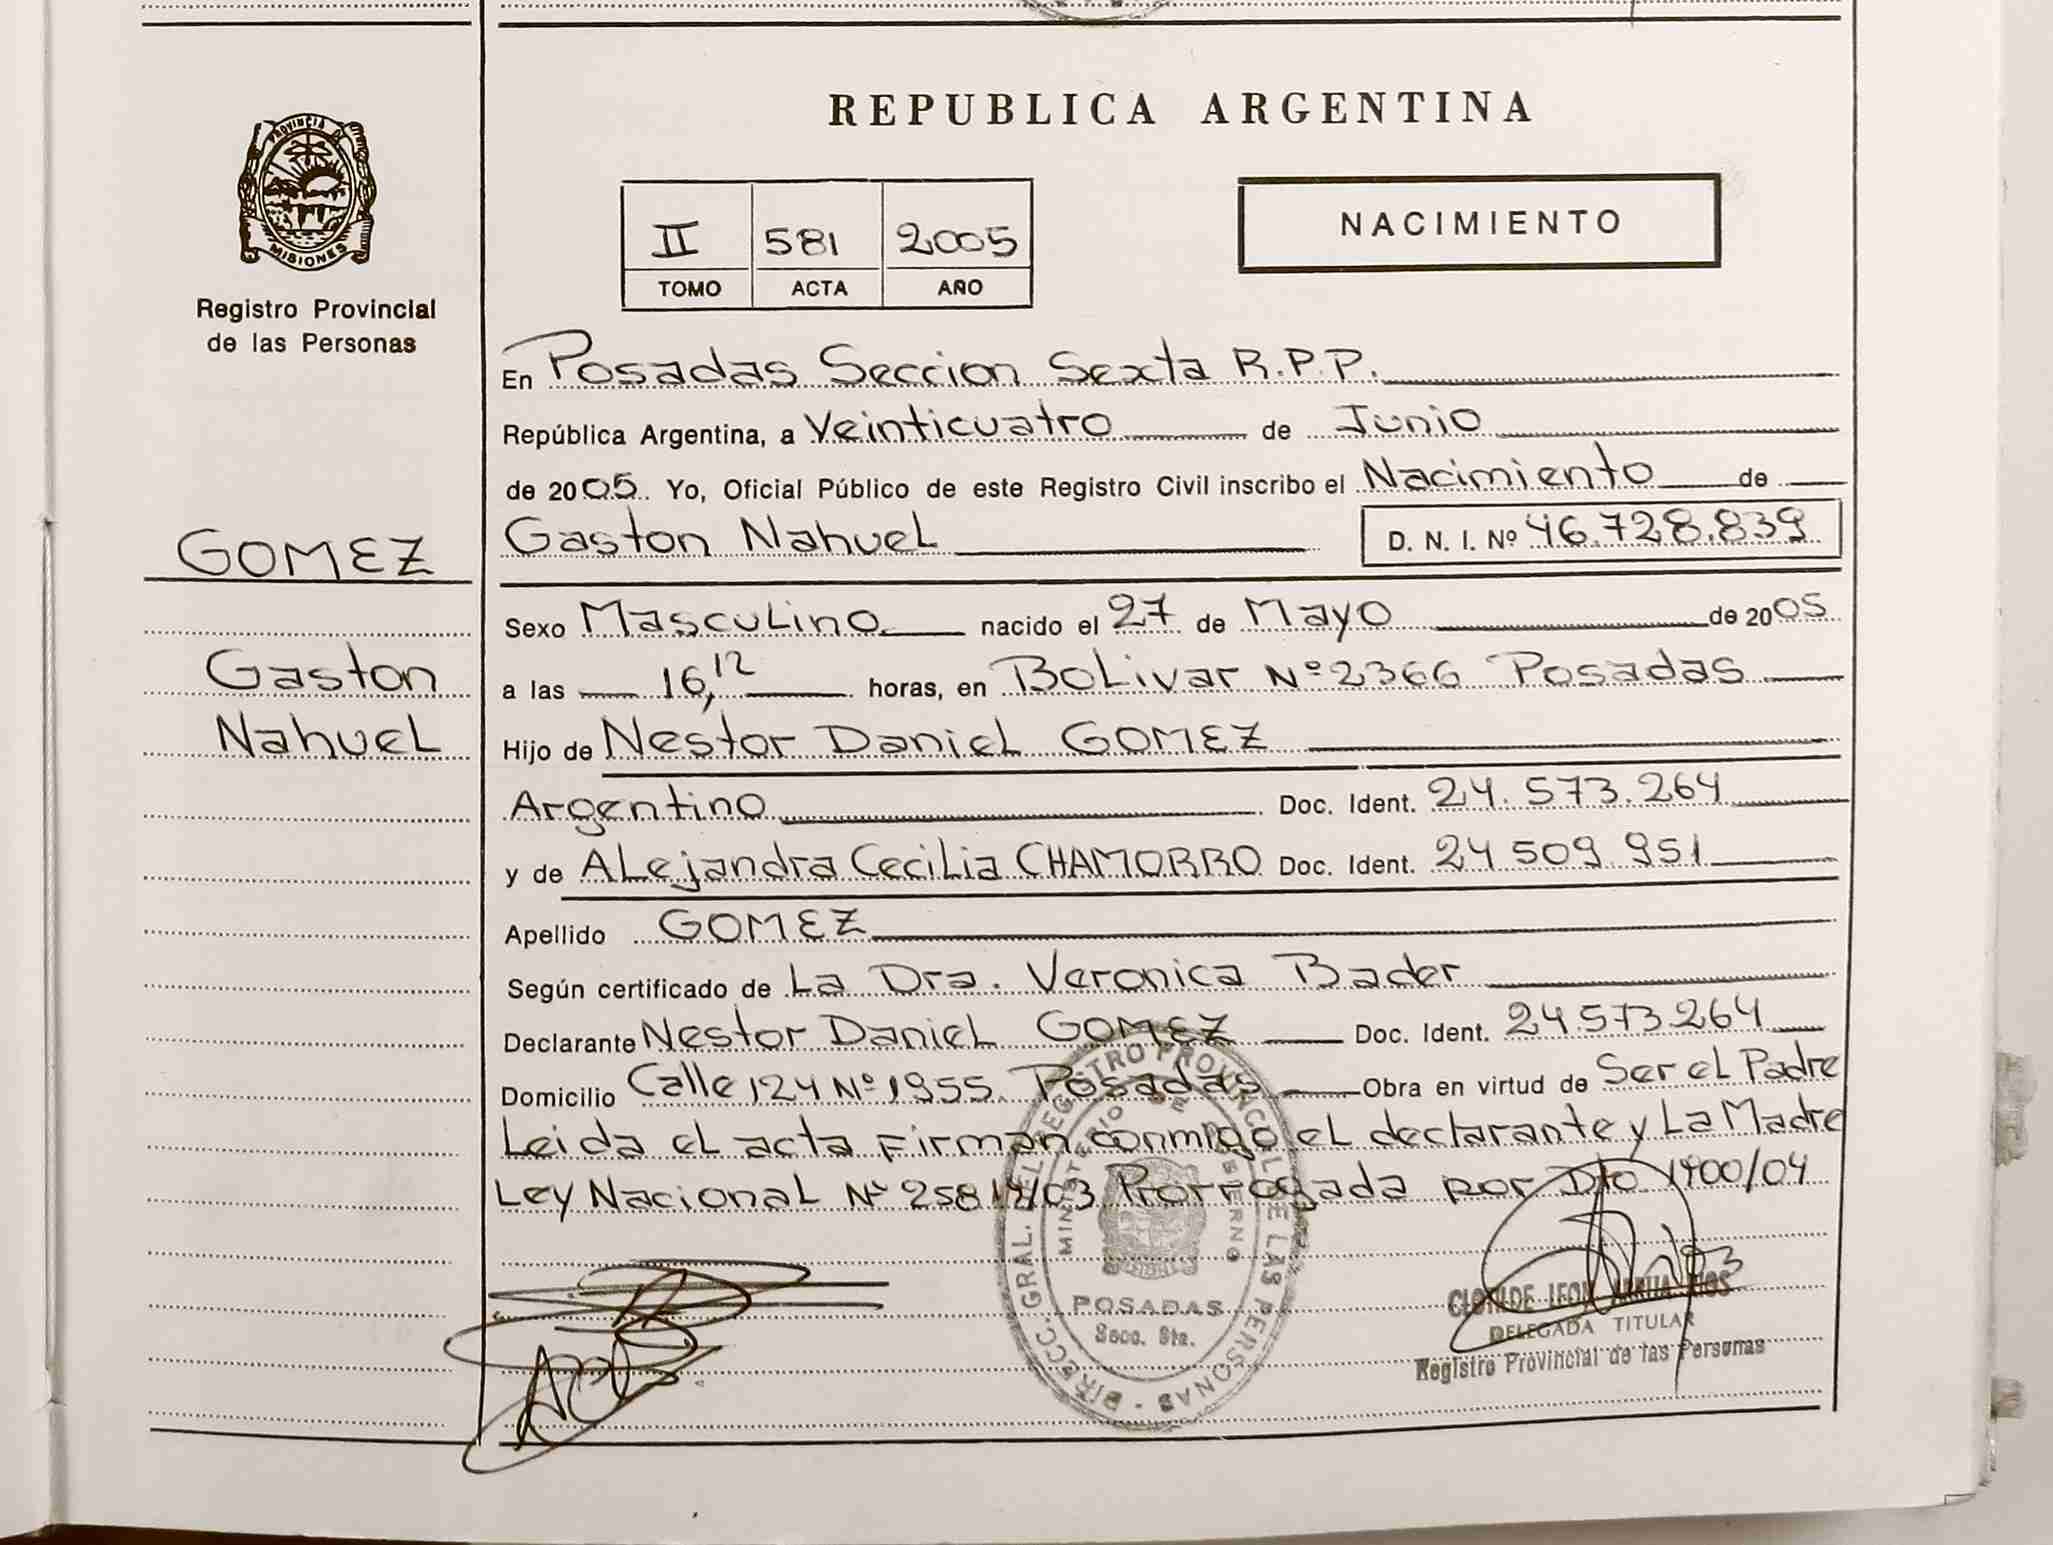 REPUBLICA ARGENTINA
PROVINCIA DE
MISIONES
Registro Provincial
de las Personas
II 581 2005
TOMO ACTA AÑO
NACIMIENTO
GOMEZ
Gaston
Nahuel
En Posadas Seccion Sexta R.P.P.
República Argentina, a Veinticuatro de Junio
de 2005. Yo, Oficial Público de este Registro Civil inscribo el Nacimiento de
Gaston Nahuel D. N. I. Nº 46.728.839
Sexo Masculino nacido el 27 de Mayo de 2005
a las 16,12 horas, en Bolivar Nº 2366 Posadas
Hijo de Nestor Daniel GOMEZ
Argentino Doc. Ident. 24.573.264
y de Alejandra Cecilia CHAMORRO Doc. Ident. 24 509 951
Apellido GOMEZ
Según certificado de La Dra. Veronica Bader
Declarante Nestor Daniel GOMEZ Doc. Ident. 24.573.264
Domicilio Calle 124 Nº 1955 Posadas Obra en virtud de Ser el Padre
Leida el acta firman conmigo el declarante y La Madre
Ley Nacional Nº Prorrogada por Dto 1900/04
DIRECC. GRAL. DEL REGISTRO PROVINCIAL DE LAS PERSONAS
MINISTERIO DE GOBIERNO
POSADAS
Secc. 6ta.
CLOTILDE LEON
DELEGADA TITULAR
Registro Provincial de las Personas